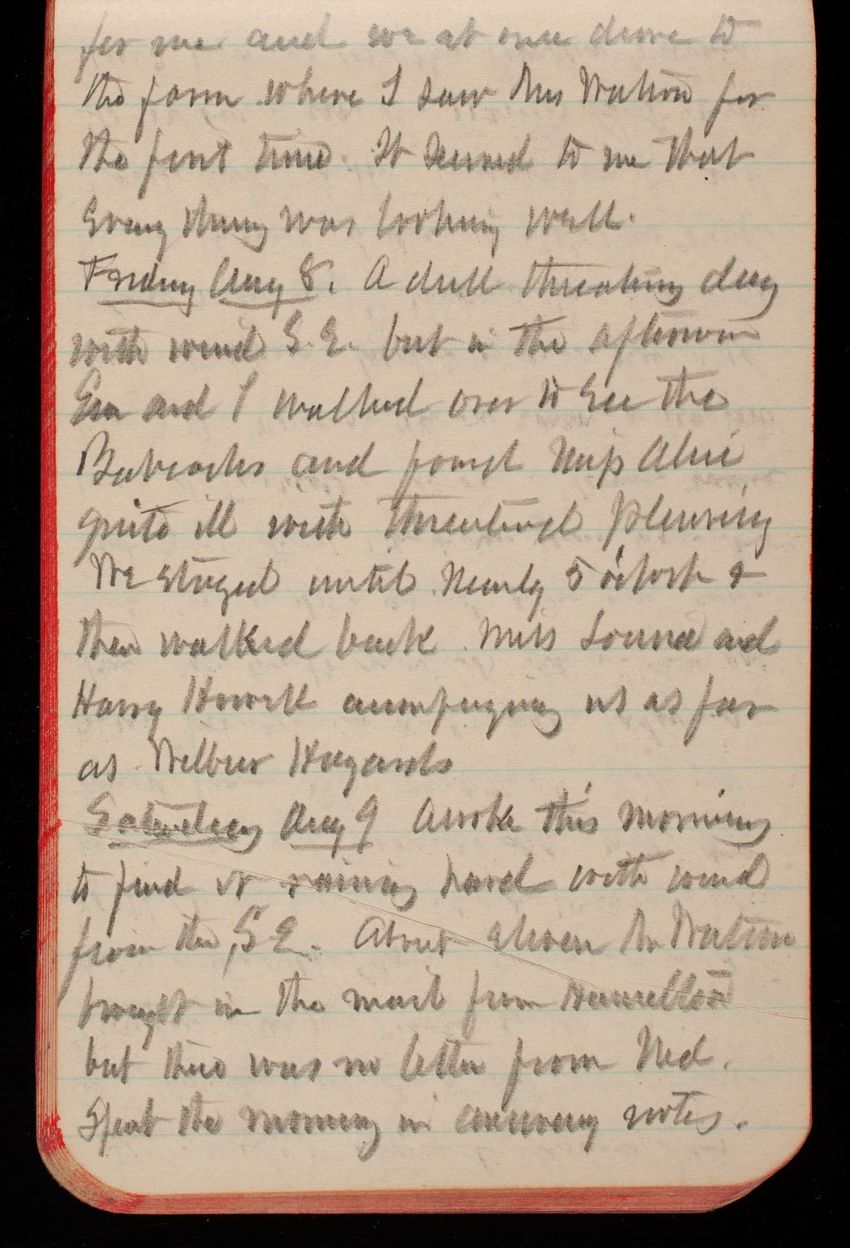 for me and we at once drove to
the farm where I saw Mrs Watson for
the first time. It seemed to me that
Every thing was looking well.
Friday Aug 8. A dull threating day
with wind S.E. but in the afternoon
Em and I walked over to see the
Babcocks and found Miss Alice
quite ill with threatened pleurisy
We stayed until nearly 5 o'clock &
then walked back. Miss Louna and
Harry Howell accompanying us as far
as Wilbur Hazards
Saturday Aug 9 Awoke this morning
to find it raining hard with wind
from the S.E. About eleven Mr Watson
brought in the mail from Hamilton
but there was no letter from Ned.
Spent the morning in answering notes.